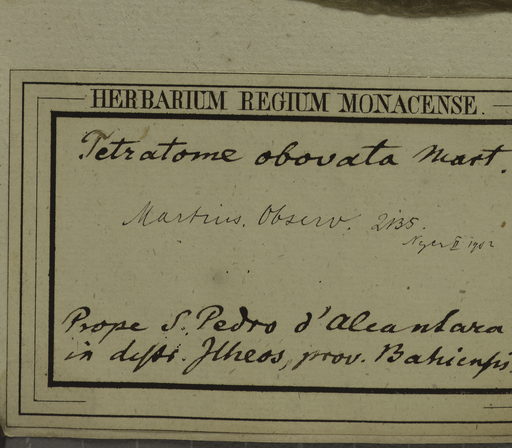 HERBARIUM REGIUM MONACENSE.
Tetratome obovata Mart.
Martius. Observ. 2135.
II 1902
Prope S. Pedro d'Alcantara
in distr. Ilheos, prov. Bahiensis